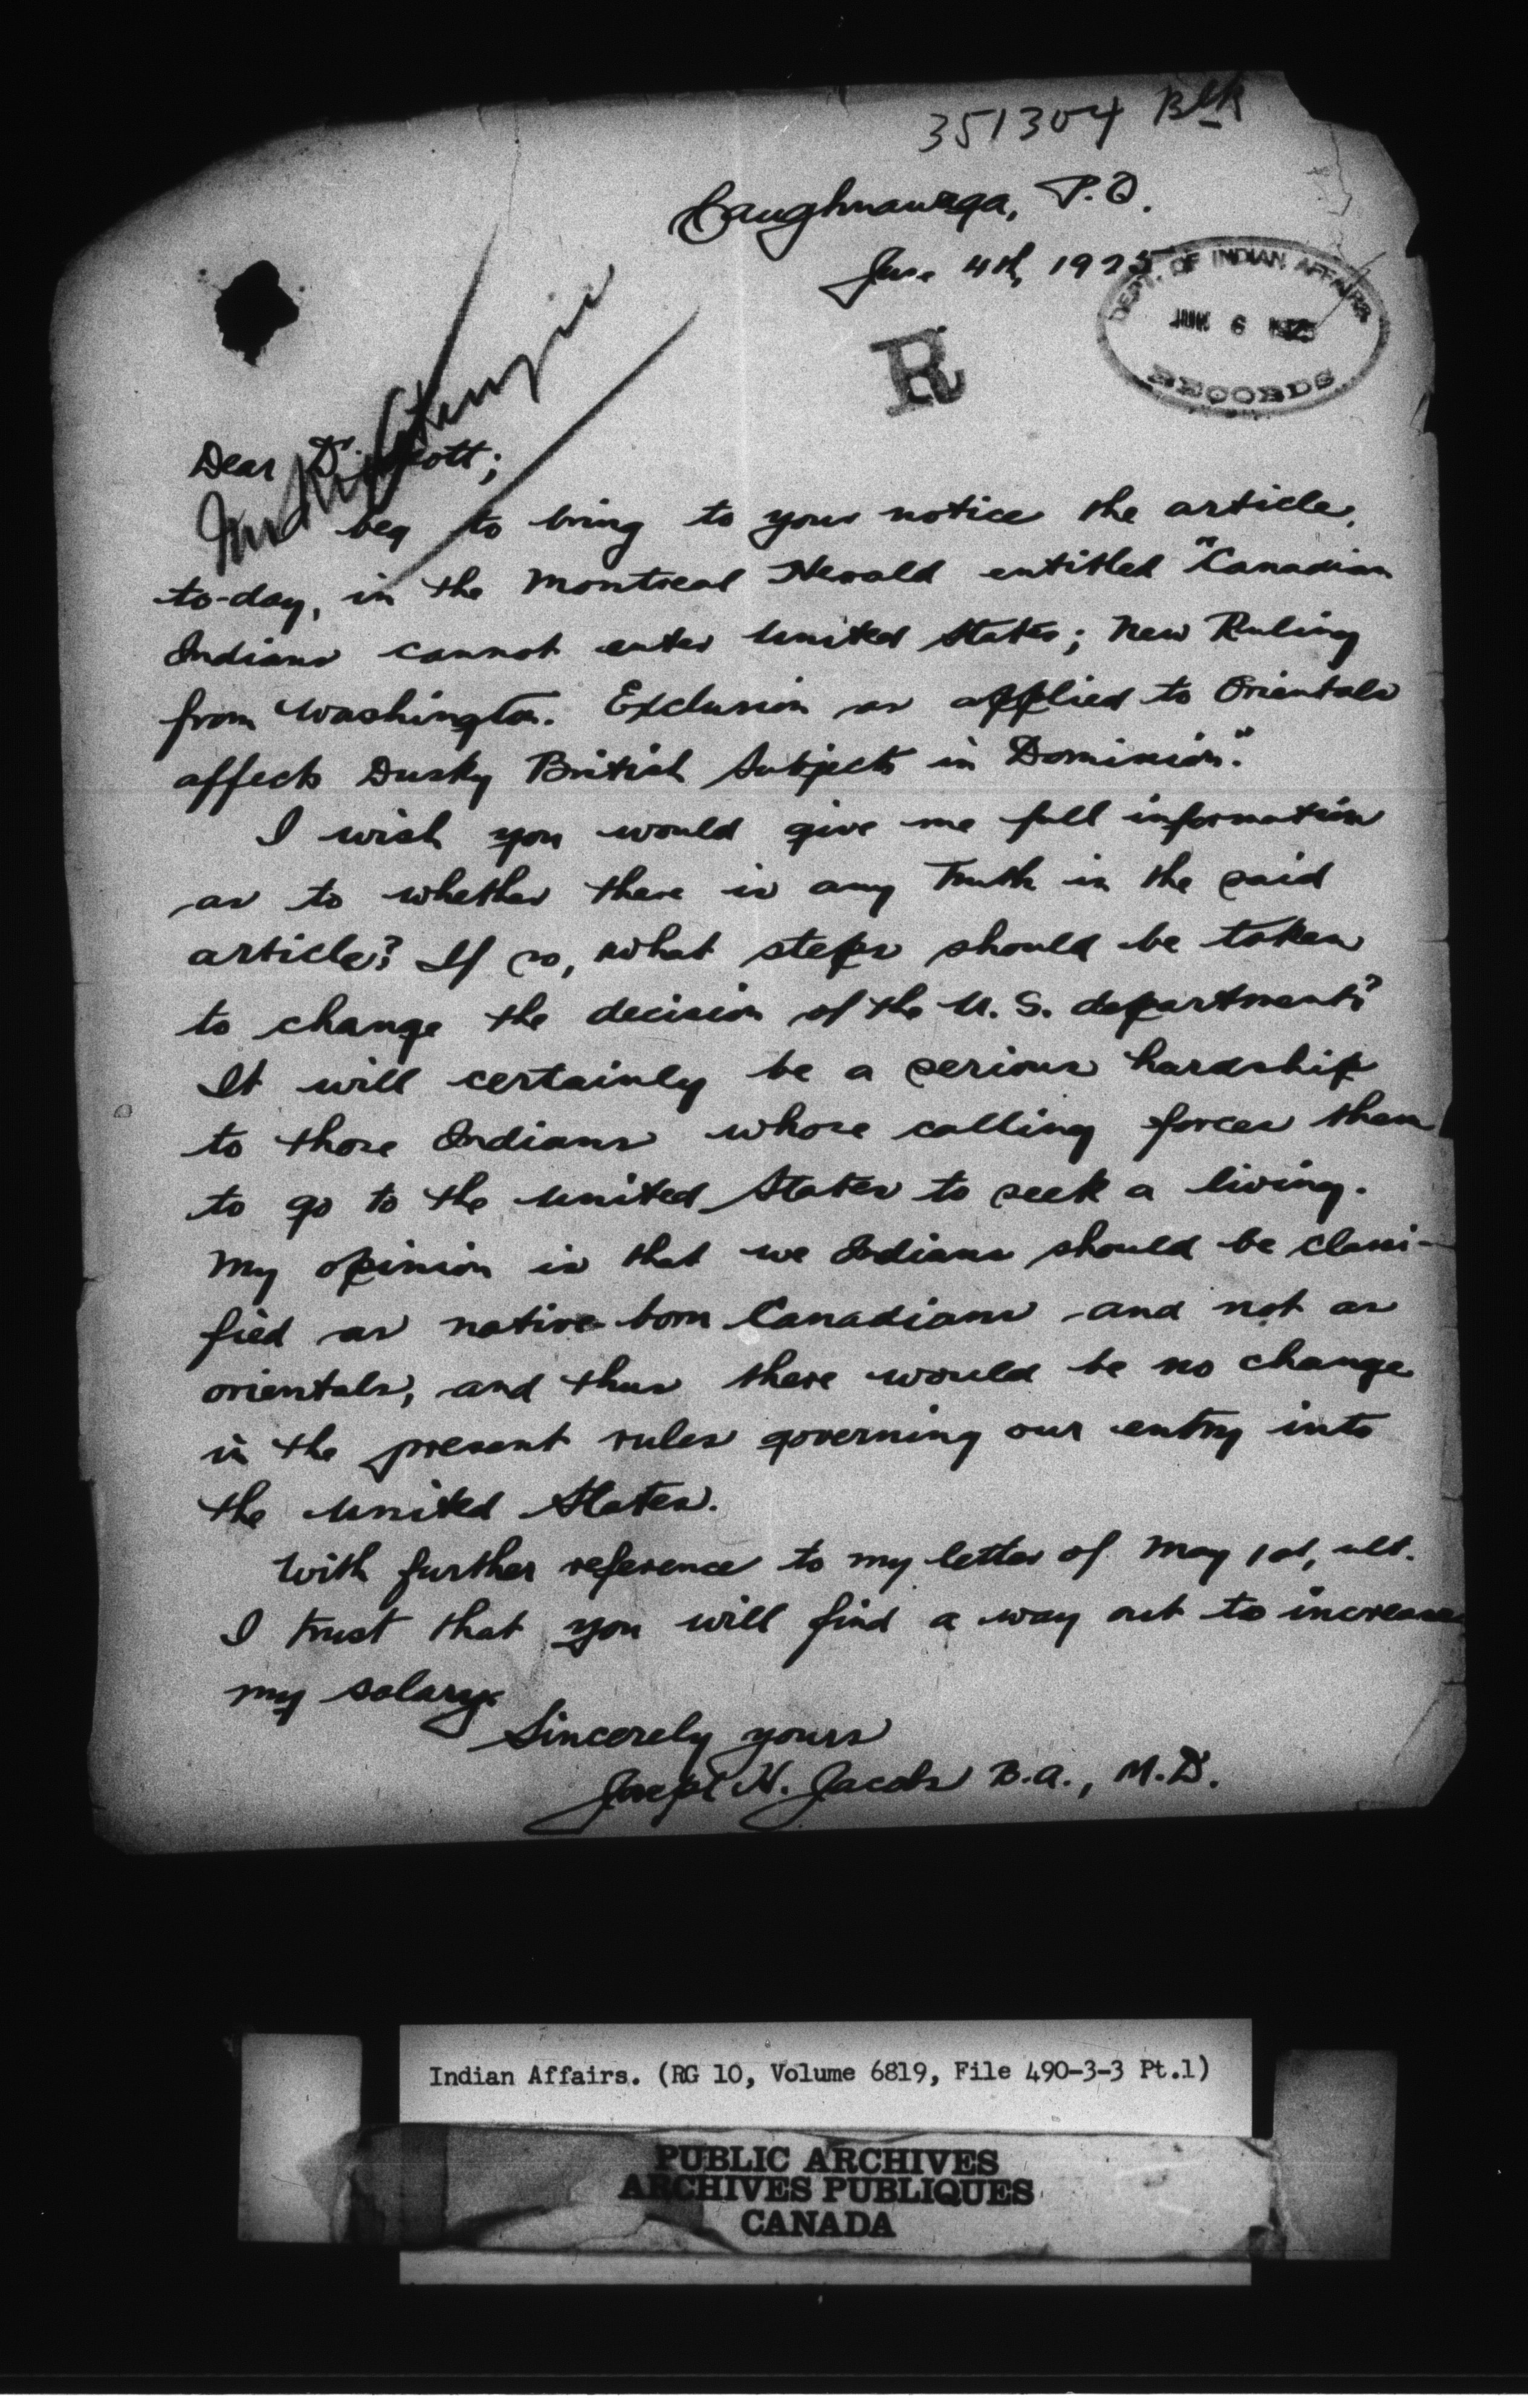 351304 Blk
Caughnawaga, P.Q.
June 4th, 1925
DEPT. OF INDIAN AFFAIRS
JUN 6 1925
RECORDS
R
Dear Dr. Scott;
beg to bring to your notice the article,
to-day, in the Montreal Herald entitled "Canadian
Indians cannot enter United States; New Ruling
from Washington. Exclusion as applied to Orientals
affects Dusky British Subjects in Dominion."
I wish you would give me full information
as to whether there is any truth in the said
article? If so, what steps should be taken
to change the decision of the U. S. department?
It will certainly be a serious hardship
to those Indians whose calling forces them
to go to the United States to seek a living.
My opinion is that we Indians should be classi-
fied as native born Canadians and not as
orientals, and thus there would be no change
in the present rules governing our entry into
the United States.
With further reference to my letter of May 1st, ult.
I trust that you will find a way out to increase
my salary.
Sincerely yours
Joseph H. Jacobs B.A., M.D.
Indian Affairs. (RG 10, Volume 6819, File 490-3-3 Pt.1)
PUBLIC ARCHIVES
ARCHIVES PUBLIQUES
CANADA